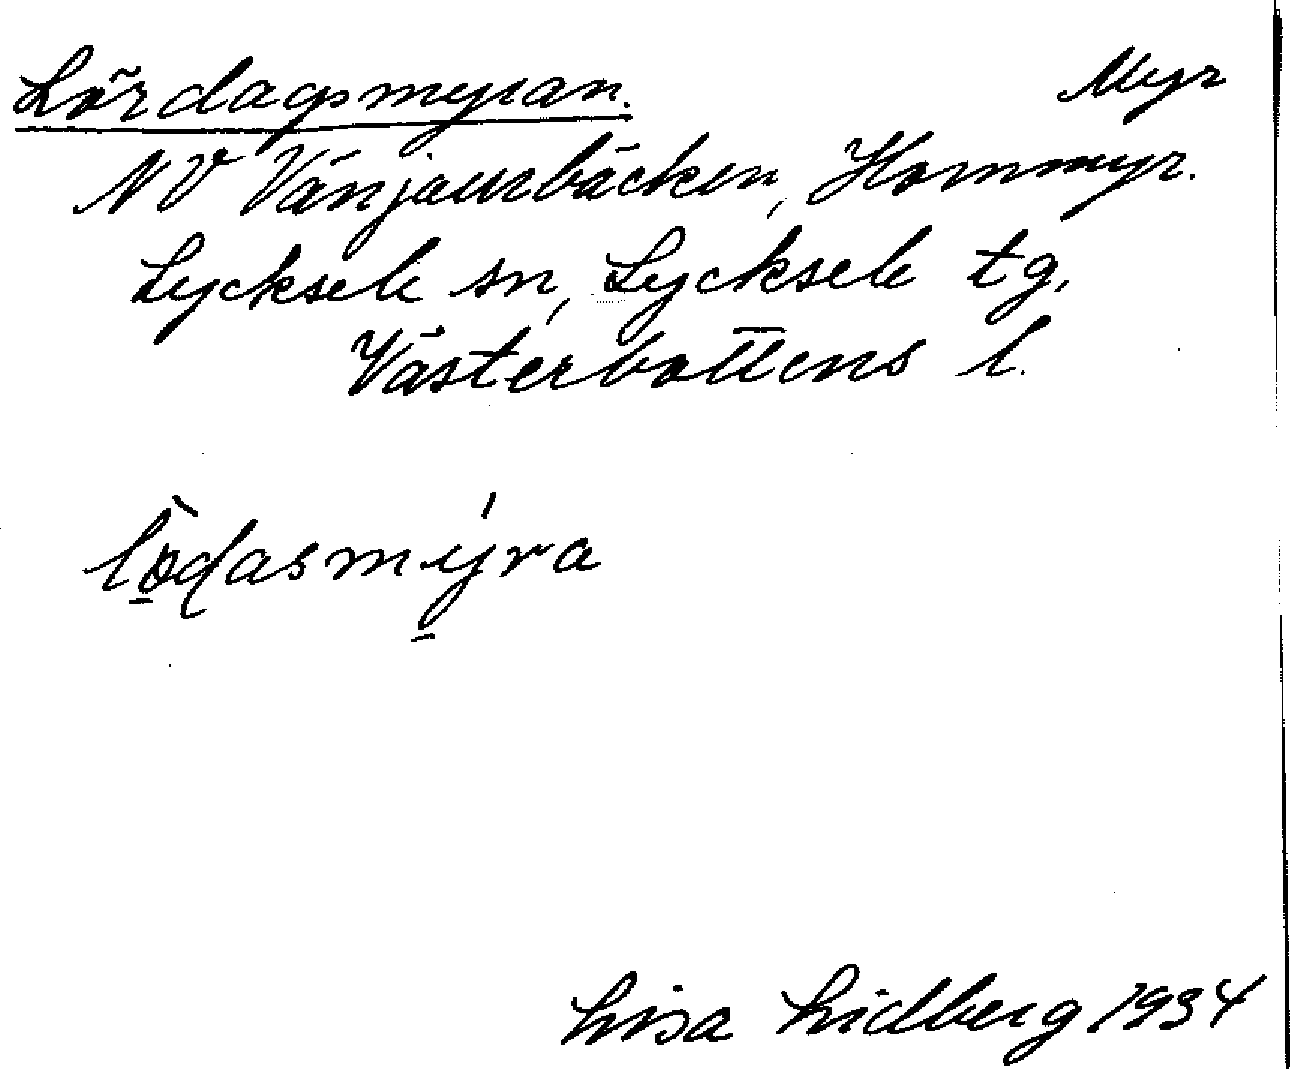 Lördagsmyran. Myr
NV Vänjaurbäcken, Hornmyr.
Lycksele sn, Lycksele tg.
Västerbottens l.
lö̀dasmýra
Lisa Lidberg 1934